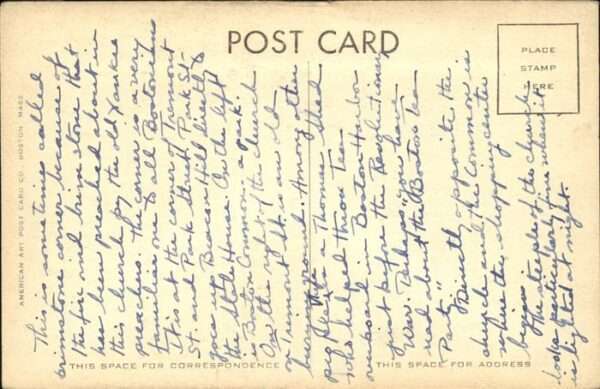 POST CARD
PLACE
STAMP
HERE
AMERICAN ART POST CARD CO., BOSTON, MASS.
THIS SPACE FOR CORRESPONDENCE
THIS SPACE FOR ADDRESS
This is sometimes called
brimstone corner because of
the fire and brimstone that
has been preached about in
this church by the old Yankee
preachers. The corner is a very
familiar one to all Bostonians
It is at the corner of Tremont
St. and Park Street. Park St.
goes up Beacon Hill directly to
the State House. On the left
is Boston Common, a park.
On the right of the church
on Tremont St. is an old
burial ground. Among other
people is a Thomas
who helped throw tea
overboard in Boston Harbor
just before the Revolutionary
War. Perhaps you have
read about the Boston Tea
Party"
Directly opposite the
church and the Common is
where the shopping center
begins.
The steeple of the church
looks particularly fine when it
is lighted at night.